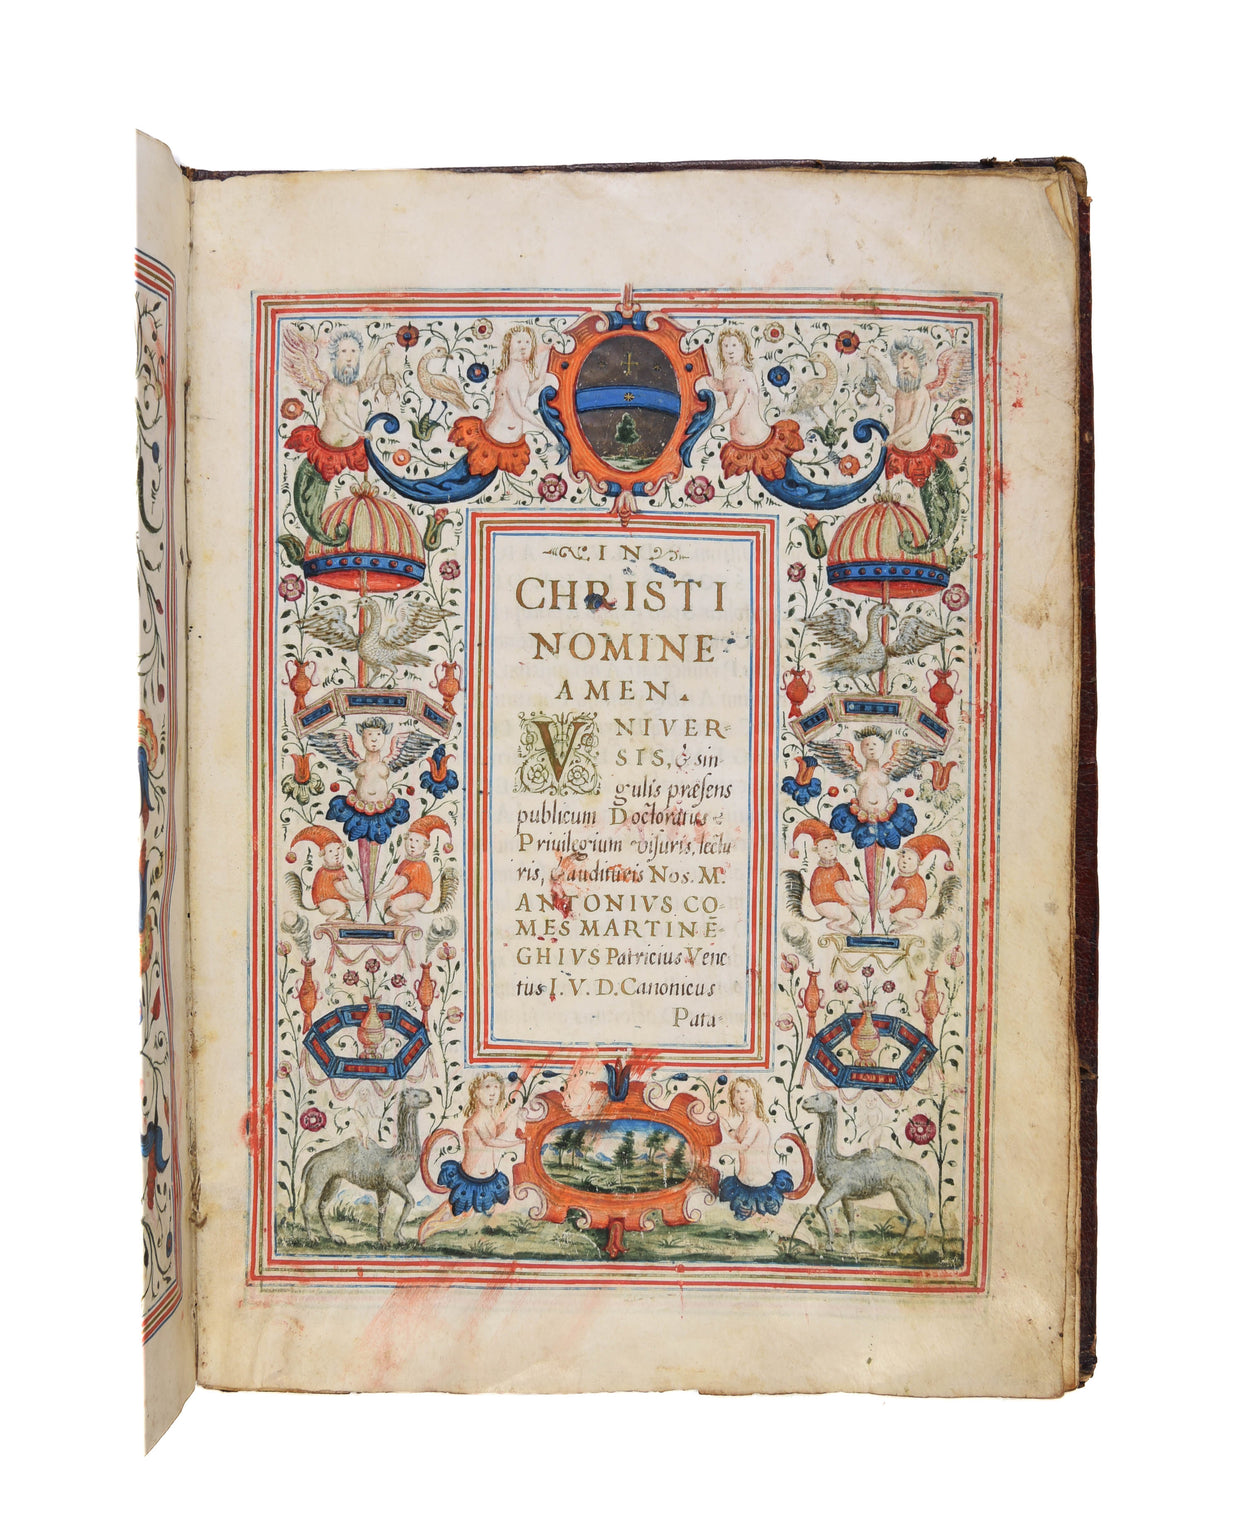 IN
CHRISTI
NOMINE
AMEN.
VNIVER-
SIS, & sin-
gulis præsens
publicum Doctoratus
Priuilegium visuris, lectu
ris, & audituris Nos. M.
ANTONIVS CO-
MES MARTINĒ-
GHIVS Patricius Vene
tus I. V. D. Canonicus
Pata-